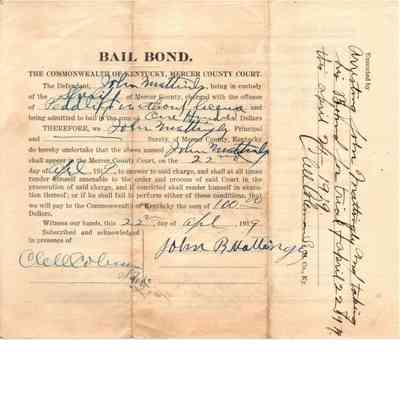 BAIL BOND.
THE COMMONWEALTH OF KENTUCKY, MERCER COUNTY COURT.
The Defendant, John Mattingly, being in custody
of the Sheriff of Mercer County, charged with the offense
of Peddling without license and
being admitted to bail in the sum of One Hundred Dollars
THEREFORE, we John Mattingly Principal
and Surety, of Mercer County, Kentucky
do hereby undertake that the above named John Mattingly
shall appear in the Mercer County Court, on the 22nd
day of April 191 to answer to said charge, and shall at all times
render himself amenable to the order and process of said Court in the
prosecution of said charge, and if convicted shall render himself in execu-
tion thereof; or if he shall fail to perform either of these conditions, that
we will pay to the Commonwealth of Kentucky the sum of 100.00
Dollars.
Witness our hands, this 22nd day of April 1919
Subscribed and acknowledged
in presence of
John B Mattingly
Clell Coleman
Executed by
Arresting John Mattingly and taking
his Bond for trial April 22 1919
this April 22 1919
Clell Coleman S. M. Co., Ky.